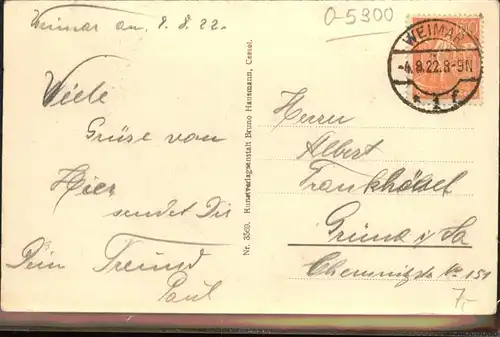 Weimar am. 8. 8. 22.
0-5300
WEIMAR
-4.8.22.8-9N
* 1 f
Viele
Grüse von
Hier
sendet Dir
Dein Freund
Paul
Nr. 3569. Kunstverlagsanstalt Bruno Hansmann, Cassel.
Herrn
Albert
Frankhölsel
Grüna i/Sa
Chemnitzstr No 151
7,-